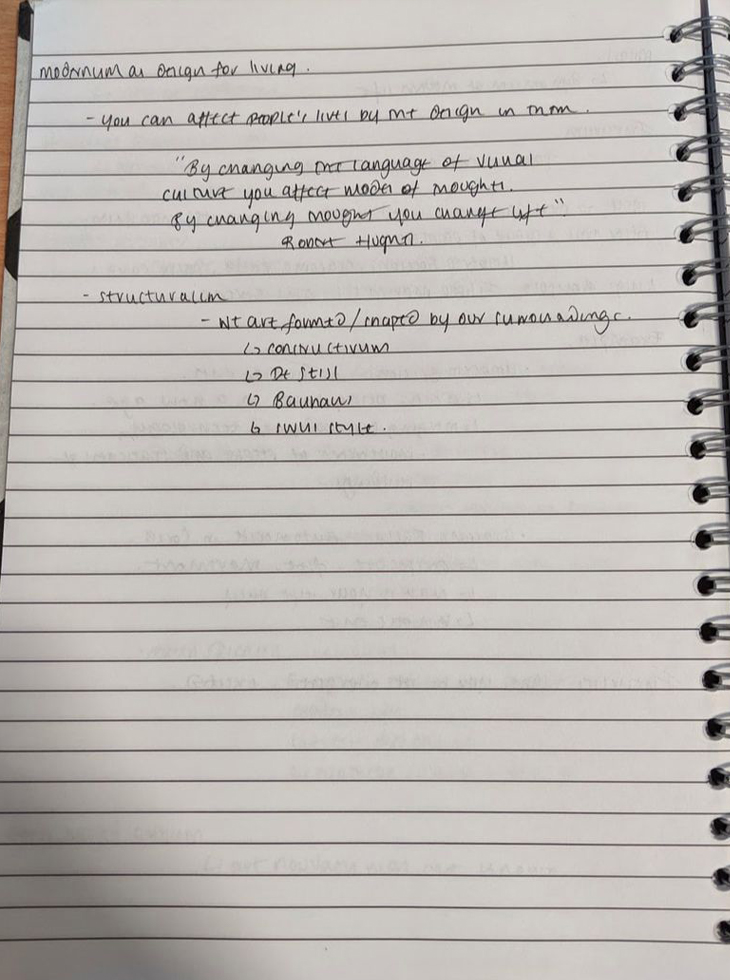 Modernism as Design for living.
- You can affect people's lives by the design in them.
"By changing the language of visual
culture you affect modes of thought.
By changing thought you change life"
Robert Hughes.
- Structuralism
- We are formed/shaped by our surroundings.
↳ Constructivism
↳ De Stijl
↳ Bauhaus
↳ Swiss Style.